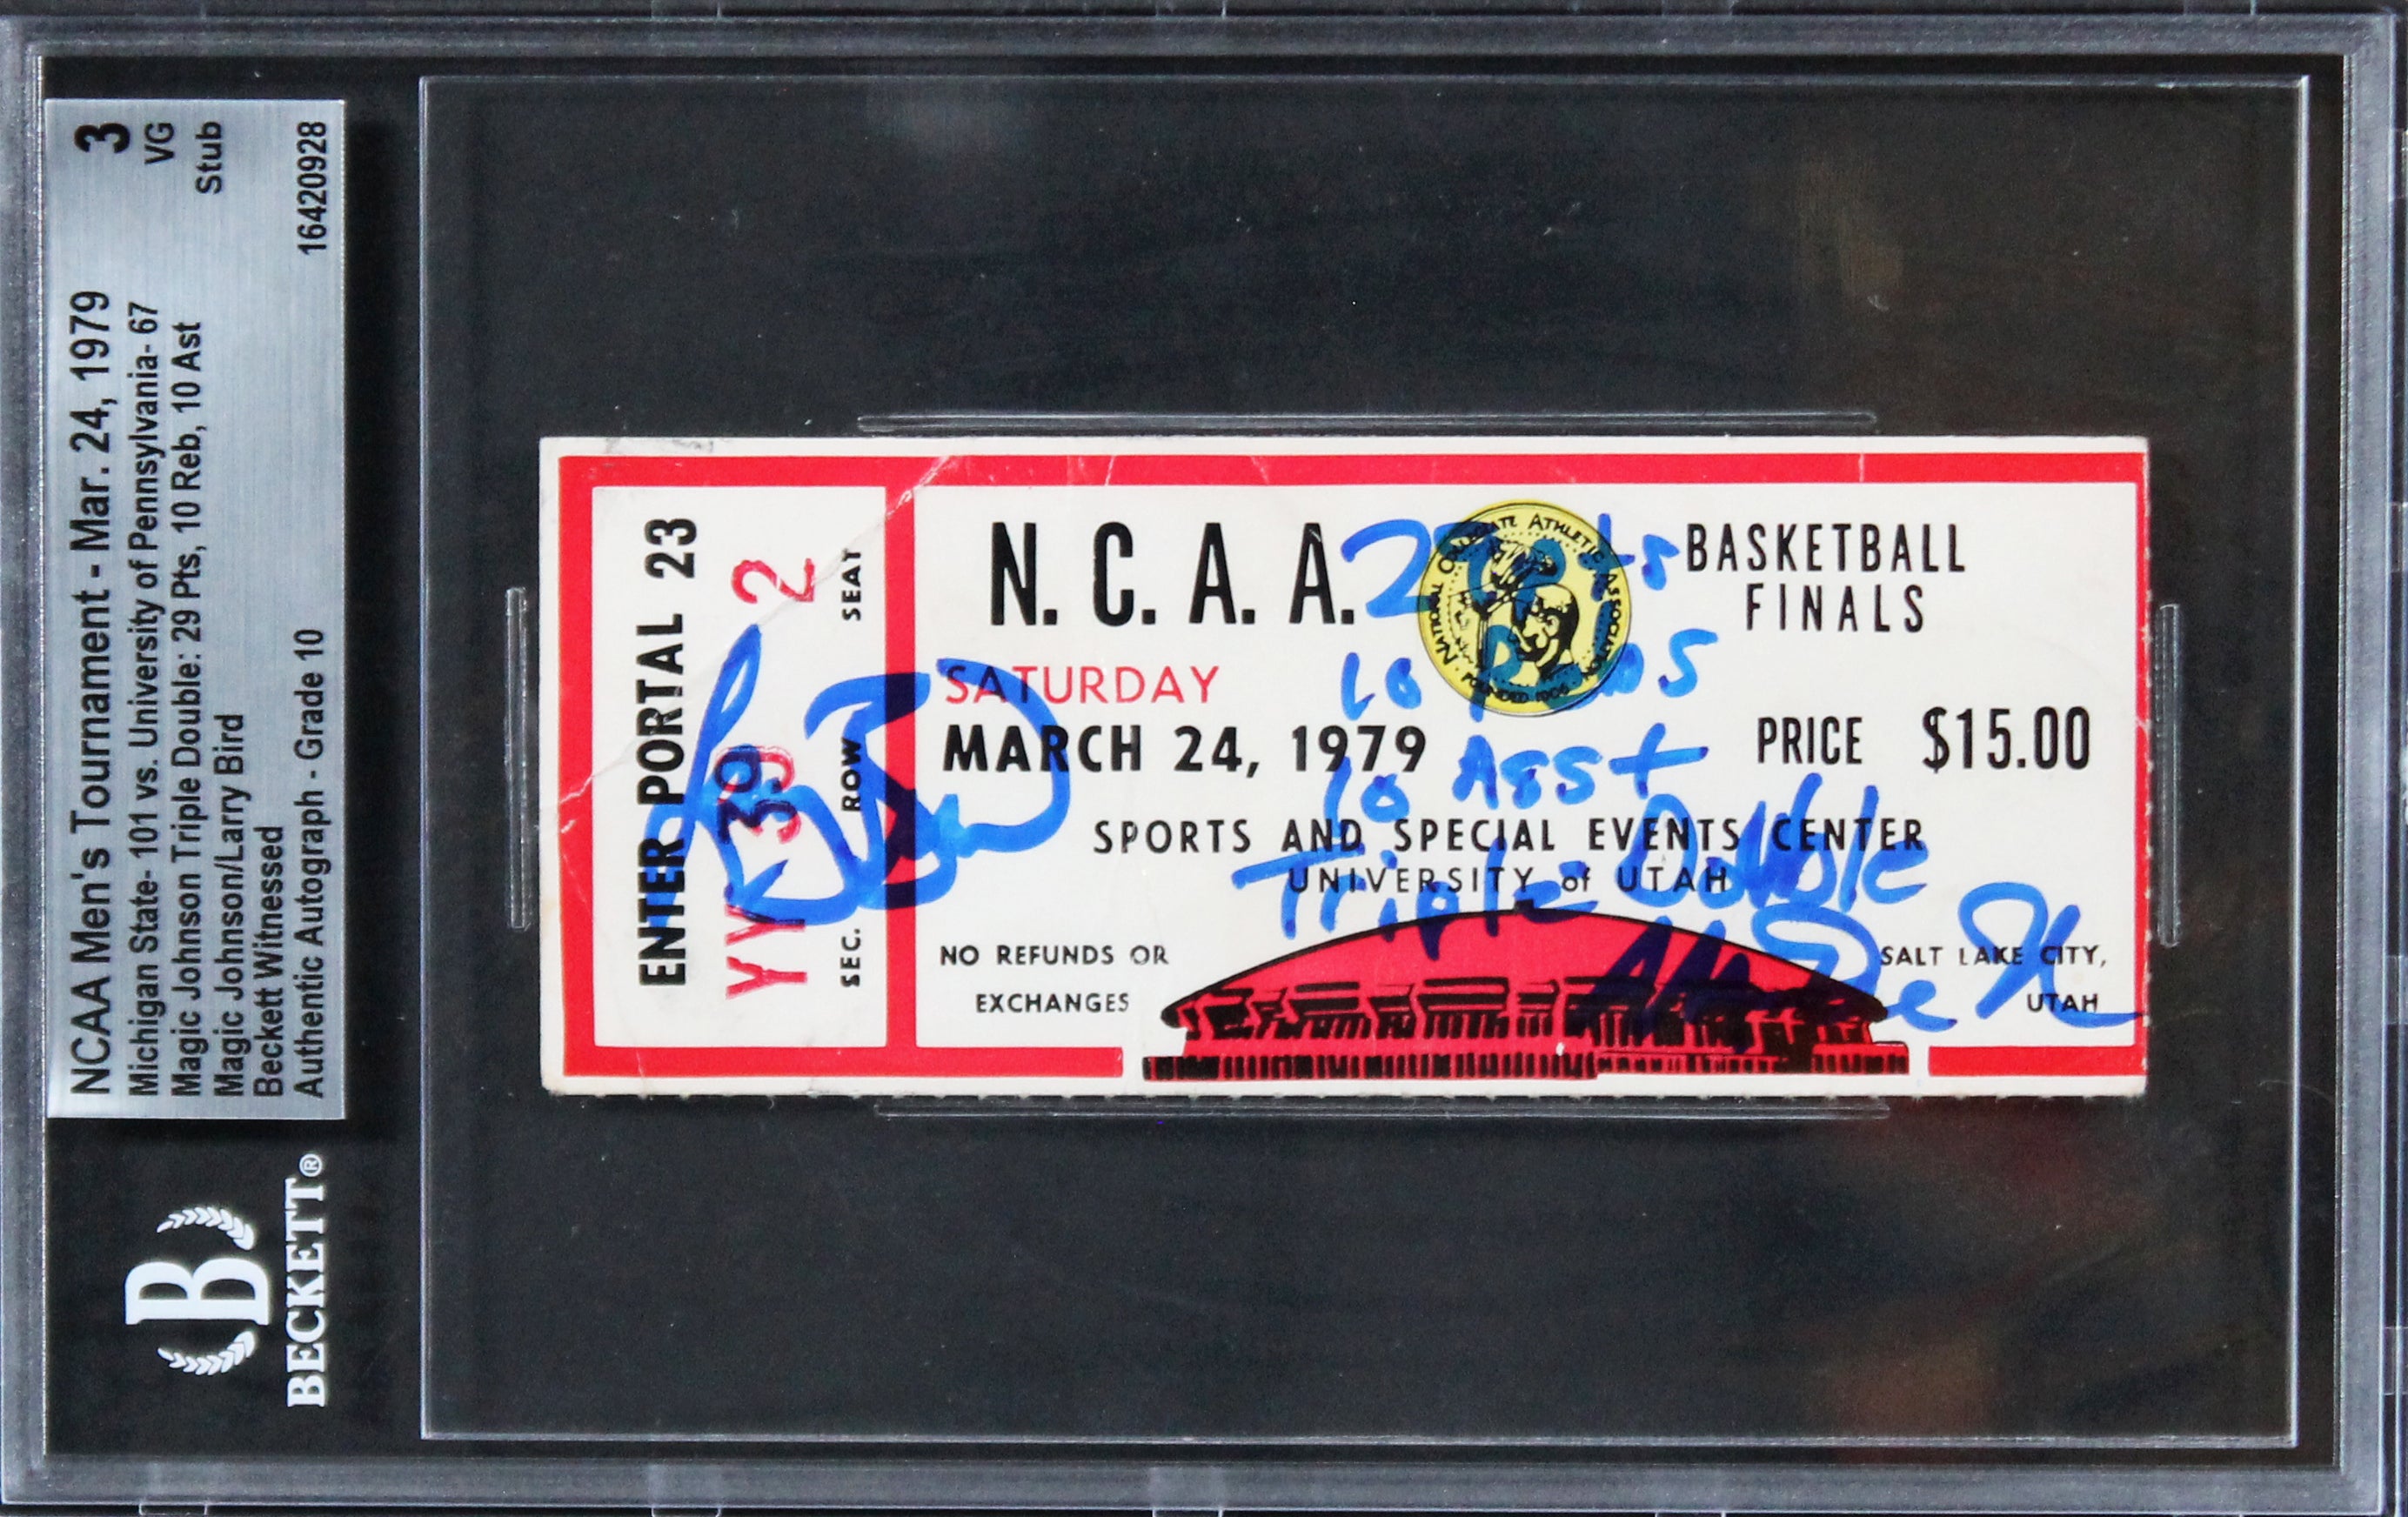 NCAA Men's Tournament - Mar. 24, 1979
Michigan State- 101 vs. University of Pennsylvania- 67
Magic Johnson Triple Double: 29 Pts, 10 Reb, 10 Ast
Magic Johnson/Larry Bird
Beckett Witnessed
Authentic Autograph - Grade 10
3
VG
Stub
16420928
B
BECKETT®
ENTER PORTAL 23
YY 39 2
SEC. ROW SEAT
N. C. A. A.
BASKETBALL
FINALS
NATIONAL COLLEGIATE ATHLETIC ASSOCIATION
FOUNDED 1906
SATURDAY
MARCH 24, 1979
PRICE $15.00
SPORTS AND SPECIAL EVENTS CENTER
UNIVERSITY of UTAH
NO REFUNDS OR
EXCHANGES
SALT LAKE CITY,
UTAH
10 Asst
Triple Double